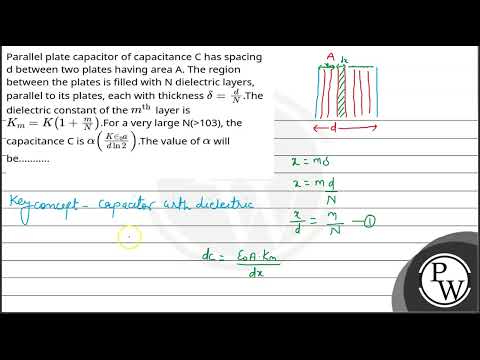 Parallel plate capacitor of capacitance C has spacing
d between two plates having area A. The region
between the plates is filled with N dielectric layers,
parallel to its plates, each with thickness δ = d/N .The
dielectric constant of the mth layer is
Km = K(1 + m/N).For a very large N(>103), the
capacitance C is α(K∈0a / d ln 2).The value of α will
be...........
A
x dx
d
x = mδ
x = m d/N
x/d = m/N — ①
Key concept - capacitor with dielectric
dc = ε0A.Km / dx
PW